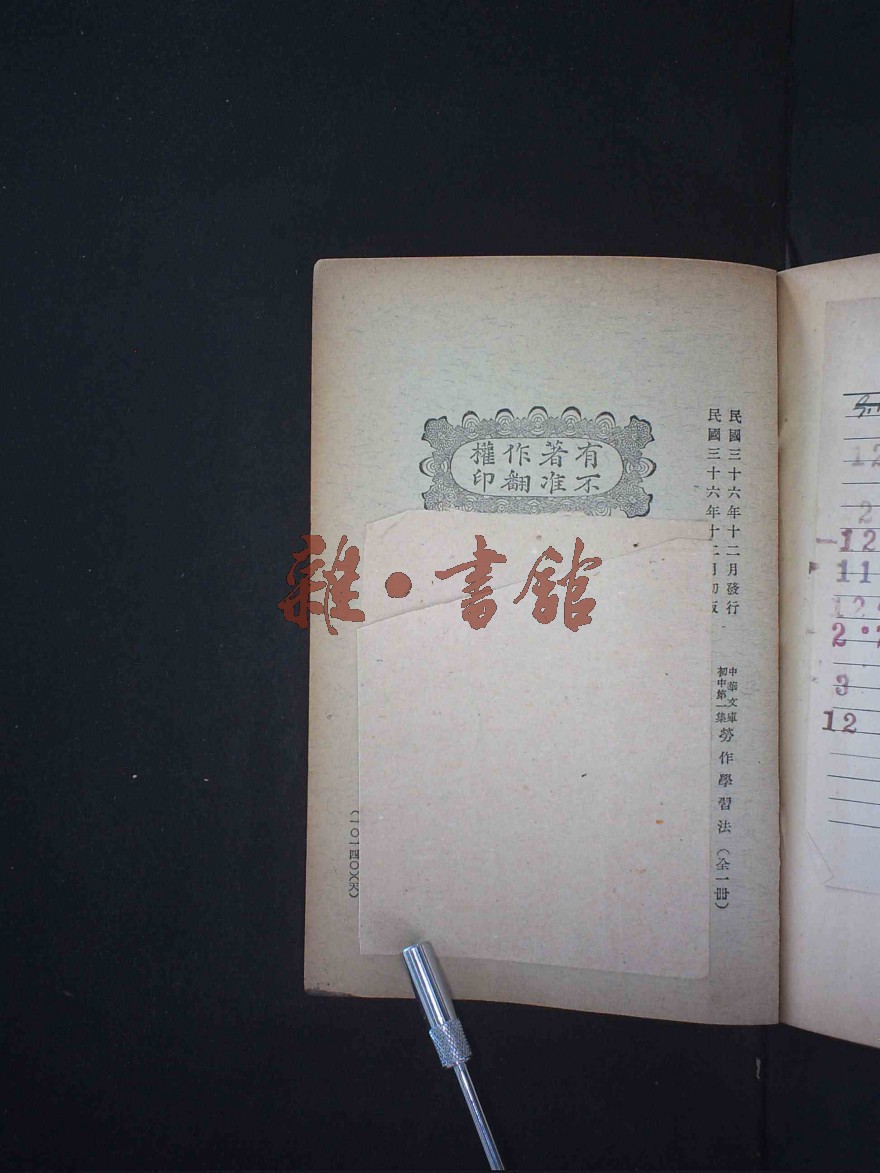 民國三十六年十二月發行
民國三十六年十二月初版
中華文庫
初中第一集
勞作學習法（全一冊）
有著作權
不准翻印
（一〇一四〇）（天）
雜·書館
12
2
-12
11
12
2·
3
12